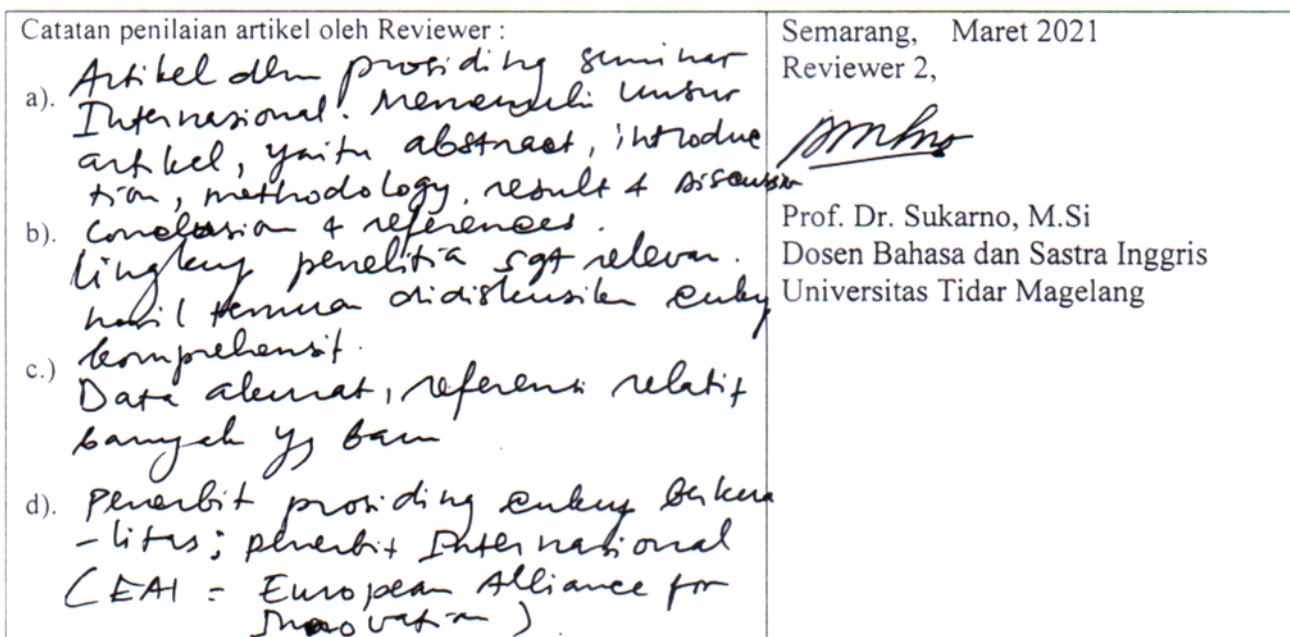 Catatan penilaian artikel oleh Reviewer :
a). Artikel dlm prosiding seminar
Internasional. Memenuhi unsur
artikel, yaitu abstract, introduc
tion, methodology, result & discussion
b). conclusion & references.
lingkup penelitia sgt relevan.
hasil temuan didiskusikan cukup
komprehensif.
c.) Data akurat, referensi relatif
banyak yg baru
d). Penerbit prosiding cukup berkua
-litas; penerbit Internasional
(EAI = European Alliance for
Innovation)
Semarang, Maret 2021
Reviewer 2,
Prof. Dr. Sukarno, M.Si
Dosen Bahasa dan Sastra Inggris
Universitas Tidar Magelang